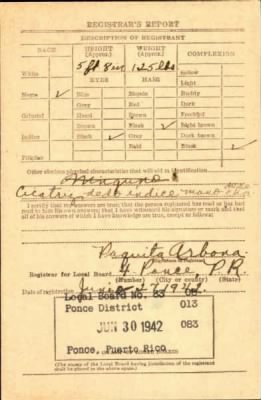 REGISTRAR'S REPORT
DESCRIPTION OF REGISTRANT
RACE HEIGHT (Approx.) WEIGHT (Approx.) COMPLEXION
White 5 ft 8 in 125 lbs Sallow
Light
EYES HAIR
Negro ✓ Blue Blonde Ruddy
Gray Red Dark
Oriental Hazel Brown Freckled
Brown Black ✓ Light brown
Indian Black ✓ Gray Dark brown
Bald Black ✓
Filipino
Other obvious physical characteristics that will aid in identification
Ninguno
Cicatriz dedo indice mano
I certify that my answers are true; that the person registered has read or has had read to him his own answers; that I have witnessed his signature or mark and that all of his answers of which I have knowledge are true, except as follows:
Paquita Arbona
(Signature of registrar)
Registrar for Local Board 4 Ponce, P.R.
(Number) (City or county) (State)
Date of registration June 27 1942
Local Board No. 83 08
Ponce District 013
JUN 30 1942 083
Ponce, Puerto Rico
(The stamp of the Local Board having jurisdiction of the registrant shall be placed in the above space.)